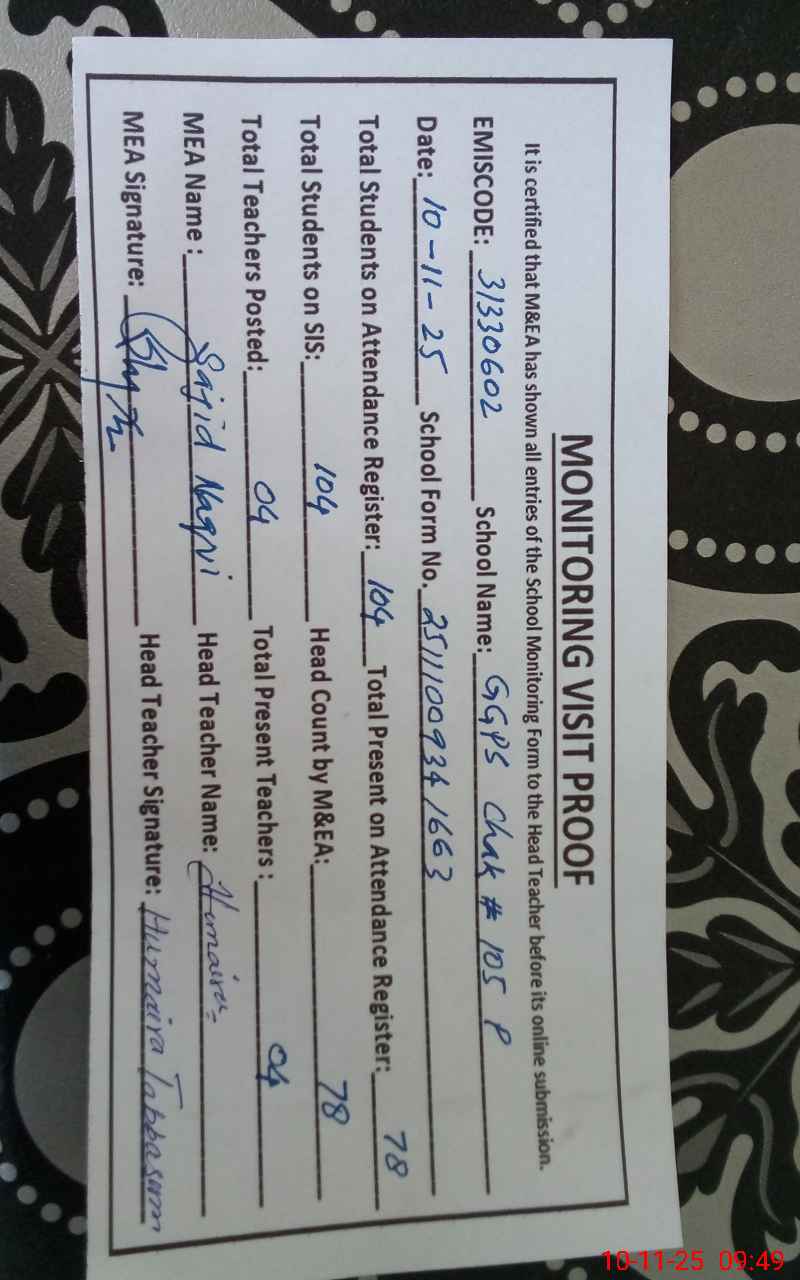 MONITORING VISIT PROOF
It is certified that M&EA has shown all entries of the School Monitoring Form to the Head Teacher before its online submission.
EMISCODE: 31330602 School Name: GGPS Chak # 105 P
Date: 10-11-25 School Form No. 25111009341663
Total Students on Attendance Register: 104 Total Present on Attendance Register: 78
Total Students on SIS: 104 Head Count by M&EA: 78
Total Teachers Posted: 04 Total Present Teachers: 04
MEA Name: Sajid Naqvi Head Teacher Name: Humaira
MEA Signature: Head Teacher Signature: Humaira Tabbasum
10-11-25 09:49